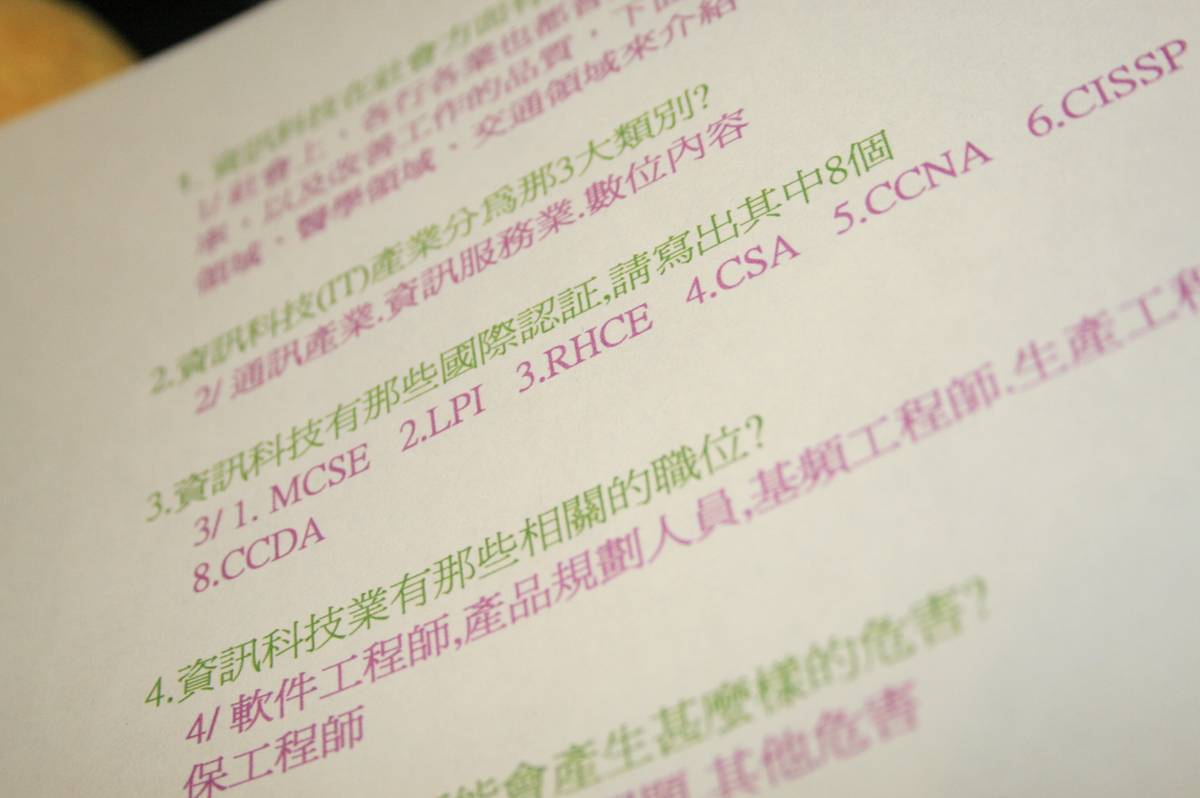 1. 資訊科技在社會方面有
1/ 社會上，各行各業也都會
率，以及改善工作的品質，下面
領域、醫學領域、交通領域來介紹
2.資訊科技(IT)產業分為那3大類別?
2/ 通訊產業.資訊服務業.數位內容
3.資訊科技有那些國際認証,請寫出其中8個
3/ 1. MCSE 2.LPI 3.RHCE 4.CSA 5.CCNA 6.CISSP
8.CCDA
4.資訊科技業有那些相關的職位?
4/ 軟件工程師,產品規劃人員,基頻工程師.生產工程
保工程師
能會產生甚麼樣的危害?
題.其他危害